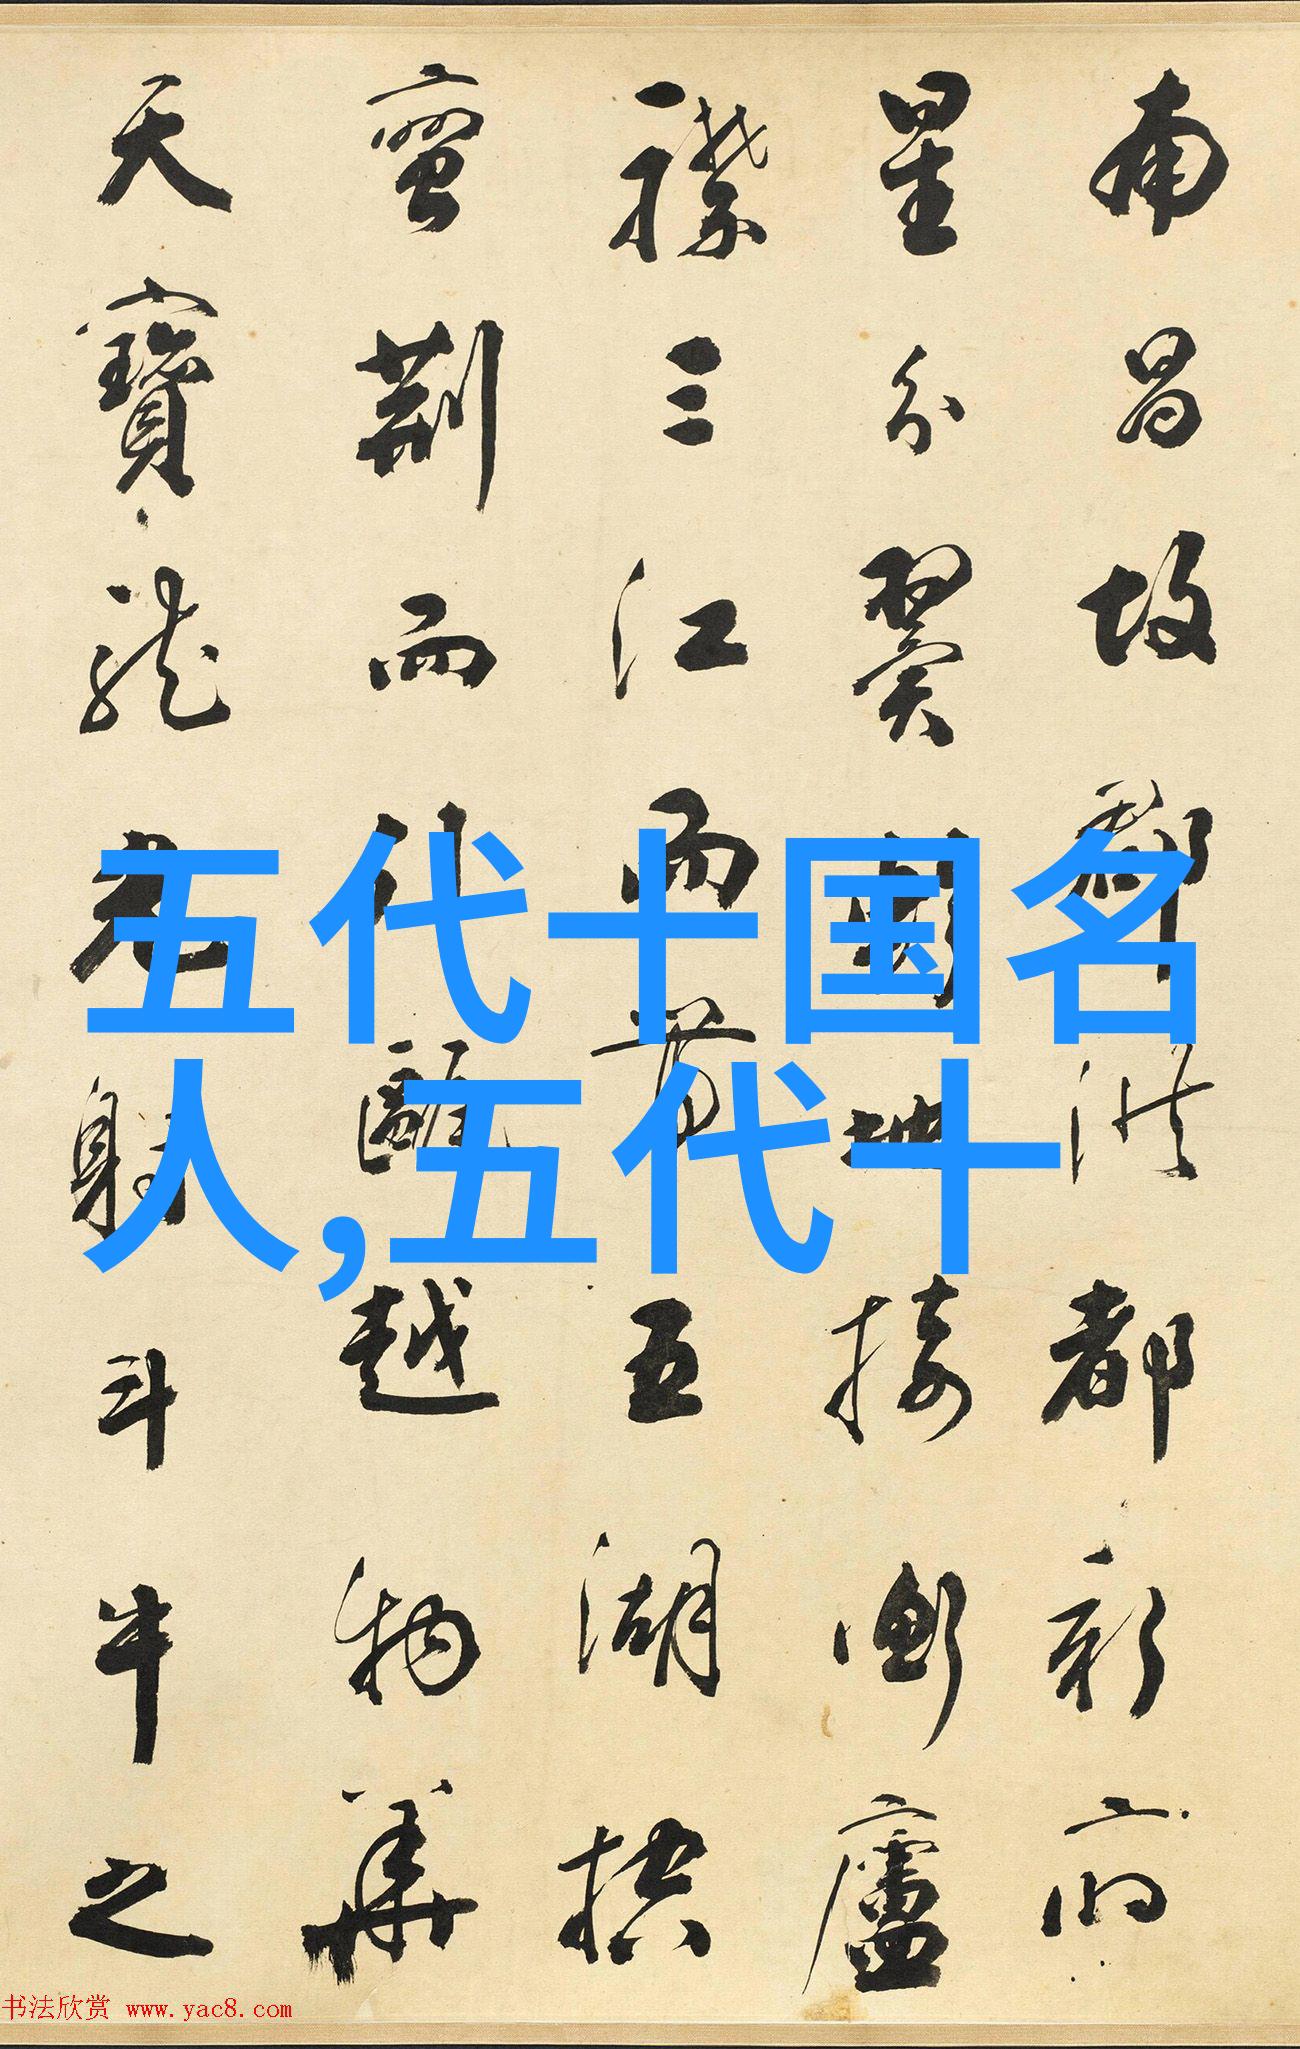 南昌故郡洪都新府
星分翼軫地接衡廬
襟三江而帶五湖控
蠻荊而引甌越物華
天寶龍光射斗牛之
五代十国名
人,五代十
书法欣赏 www.yac8.com